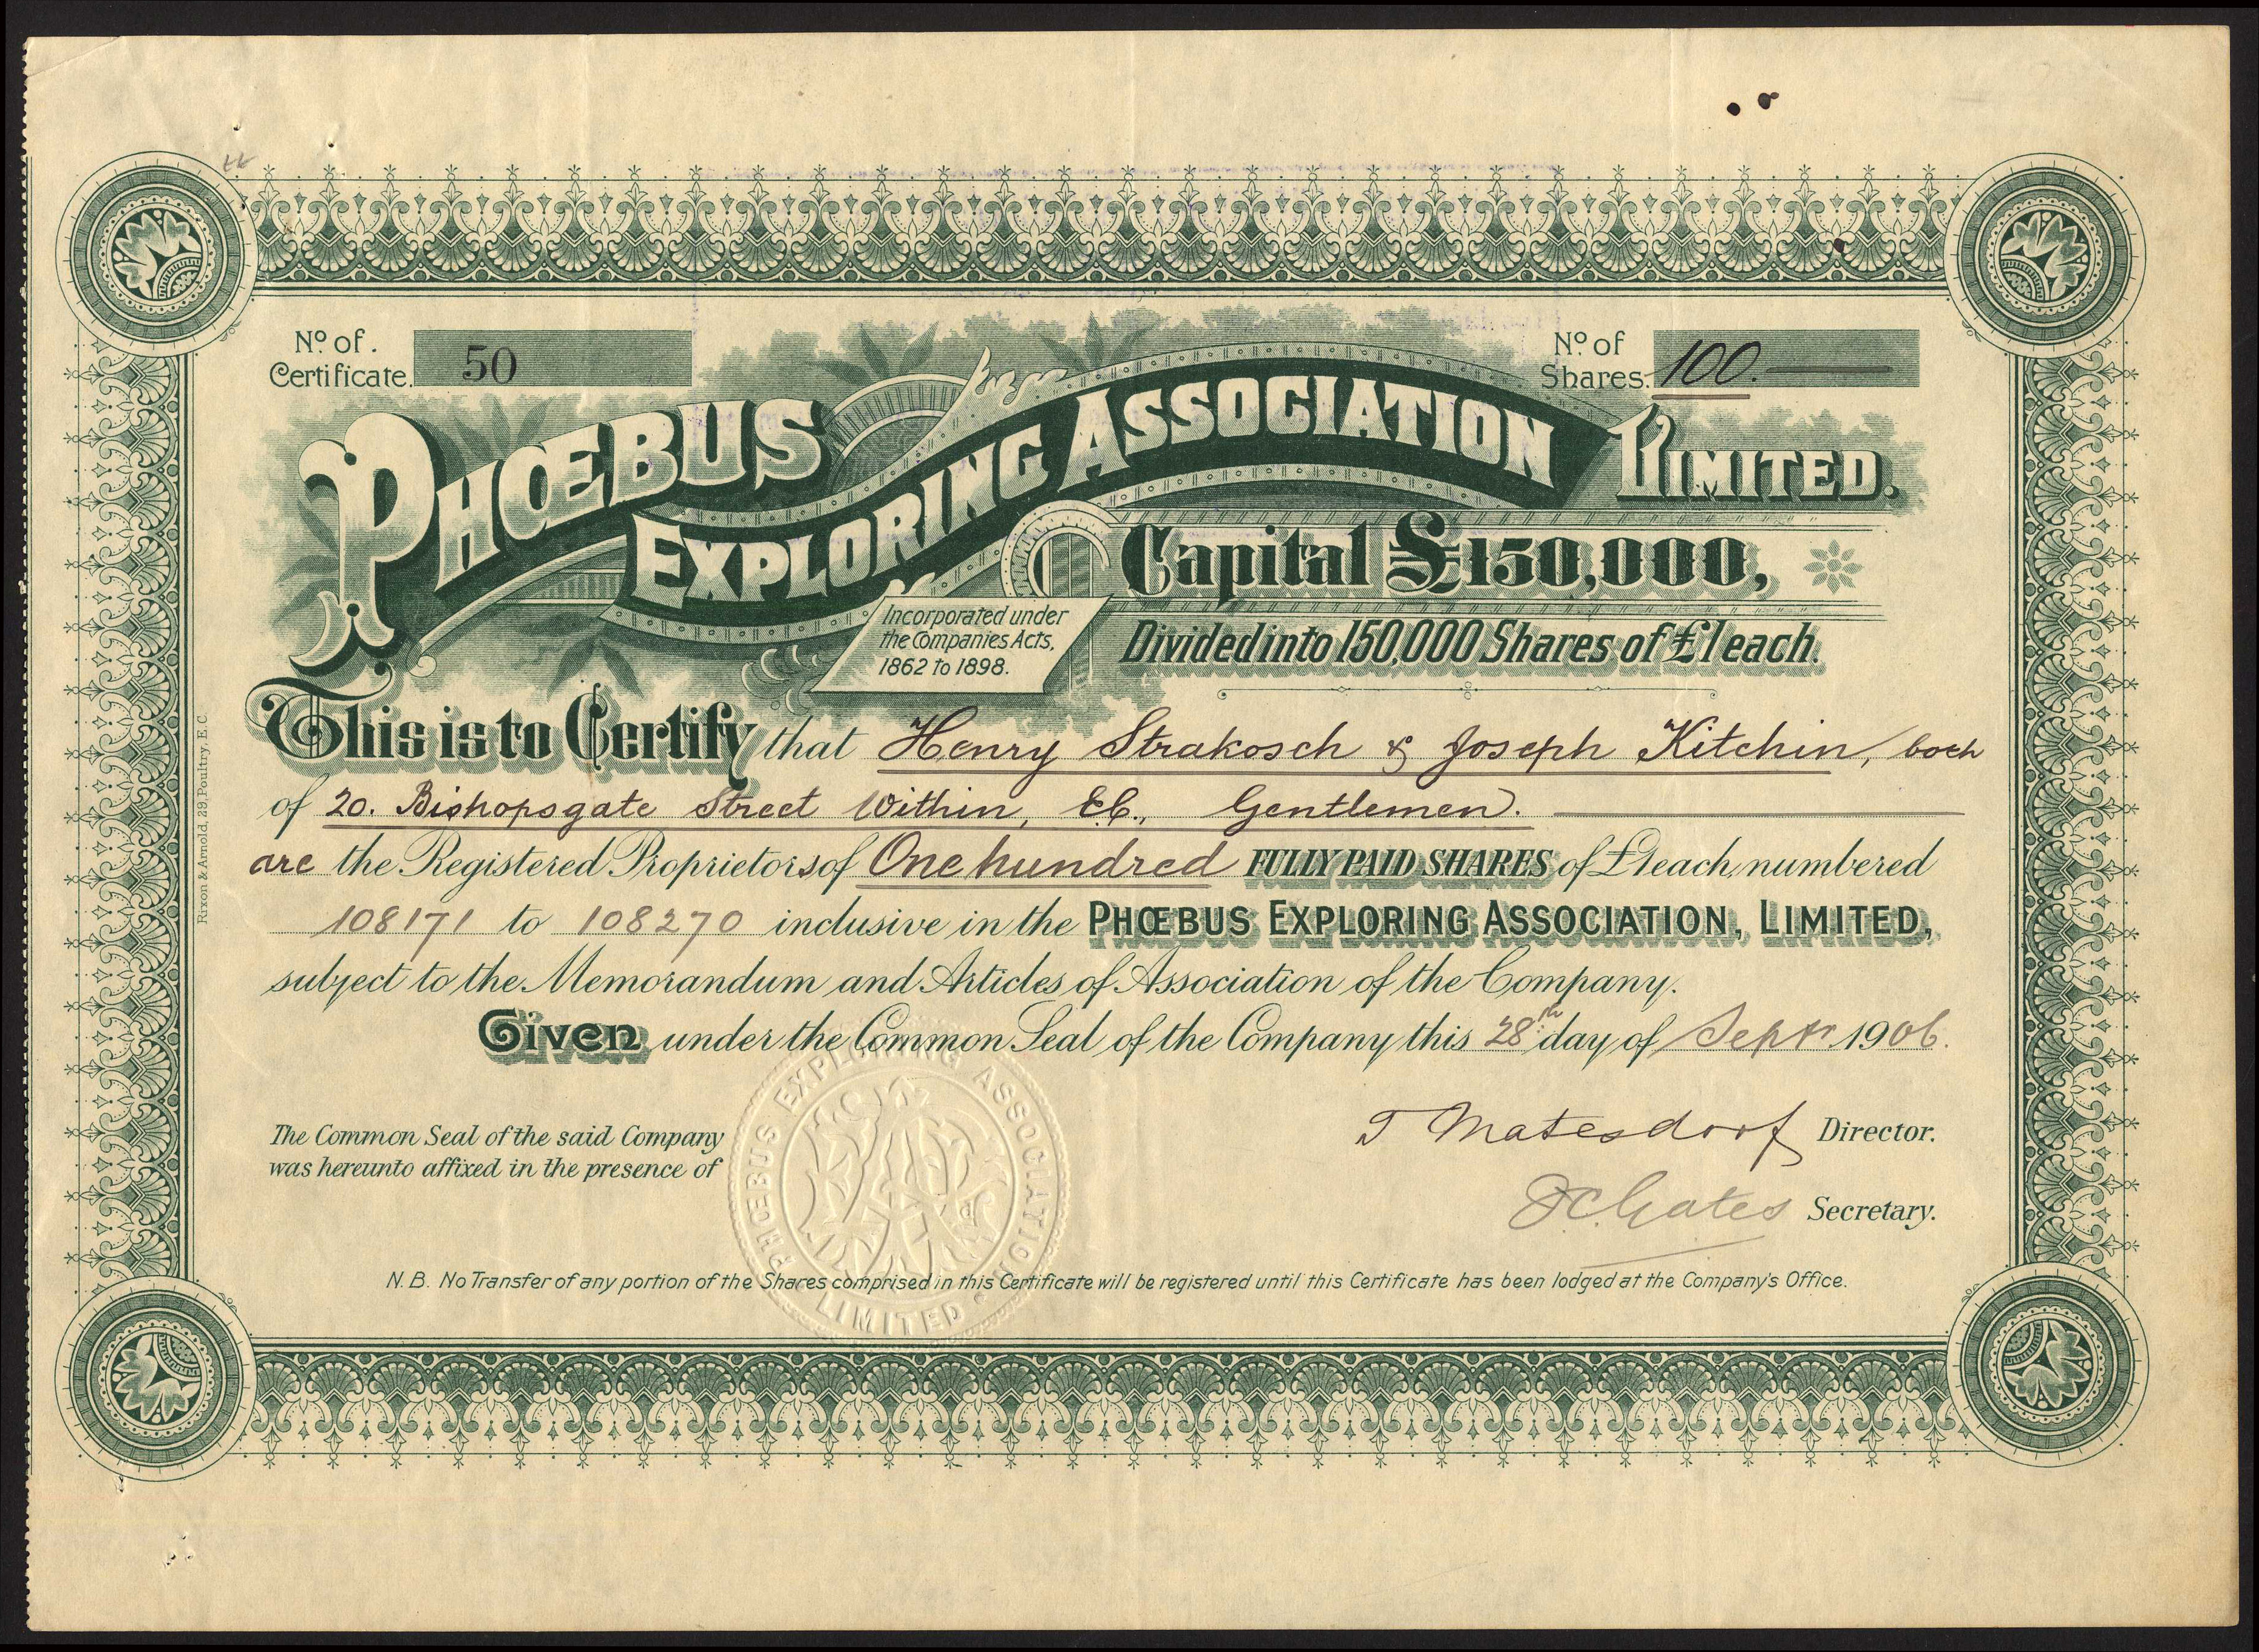 Nº of Certificate. 50
Nº of Shares. 100.
PHŒBUS EXPLORING ASSOCIATION LIMITED.
Capital £150,000,
Incorporated under
the Companies Acts,
1862 to 1898.
Divided into 150,000 Shares of £1 each.
This is to Certify that Henry Strakosch & Joseph Kitchin, both
of 20. Bishopsgate Street Within, E.C., Gentlemen.
are the Registered Proprietors of One hundred FULLY PAID SHARES of £1 each, numbered
108171 to 108270 inclusive in the PHŒBUS EXPLORING ASSOCIATION, LIMITED,
subject to the Memorandum and Articles of Association of the Company.
Given under the Common Seal of the Company this 28th day of Septr 1906.
The Common Seal of the said Company
was hereunto affixed in the presence of
PHŒBUS EXPLORING ASSOCIATION LIMITED
Matesdorf Director.
Gates Secretary.
N.B. No Transfer of any portion of the Shares comprised in this Certificate will be registered until this Certificate has been lodged at the Company's Office.
Rixon & Arnold, 29, Poultry, E.C.